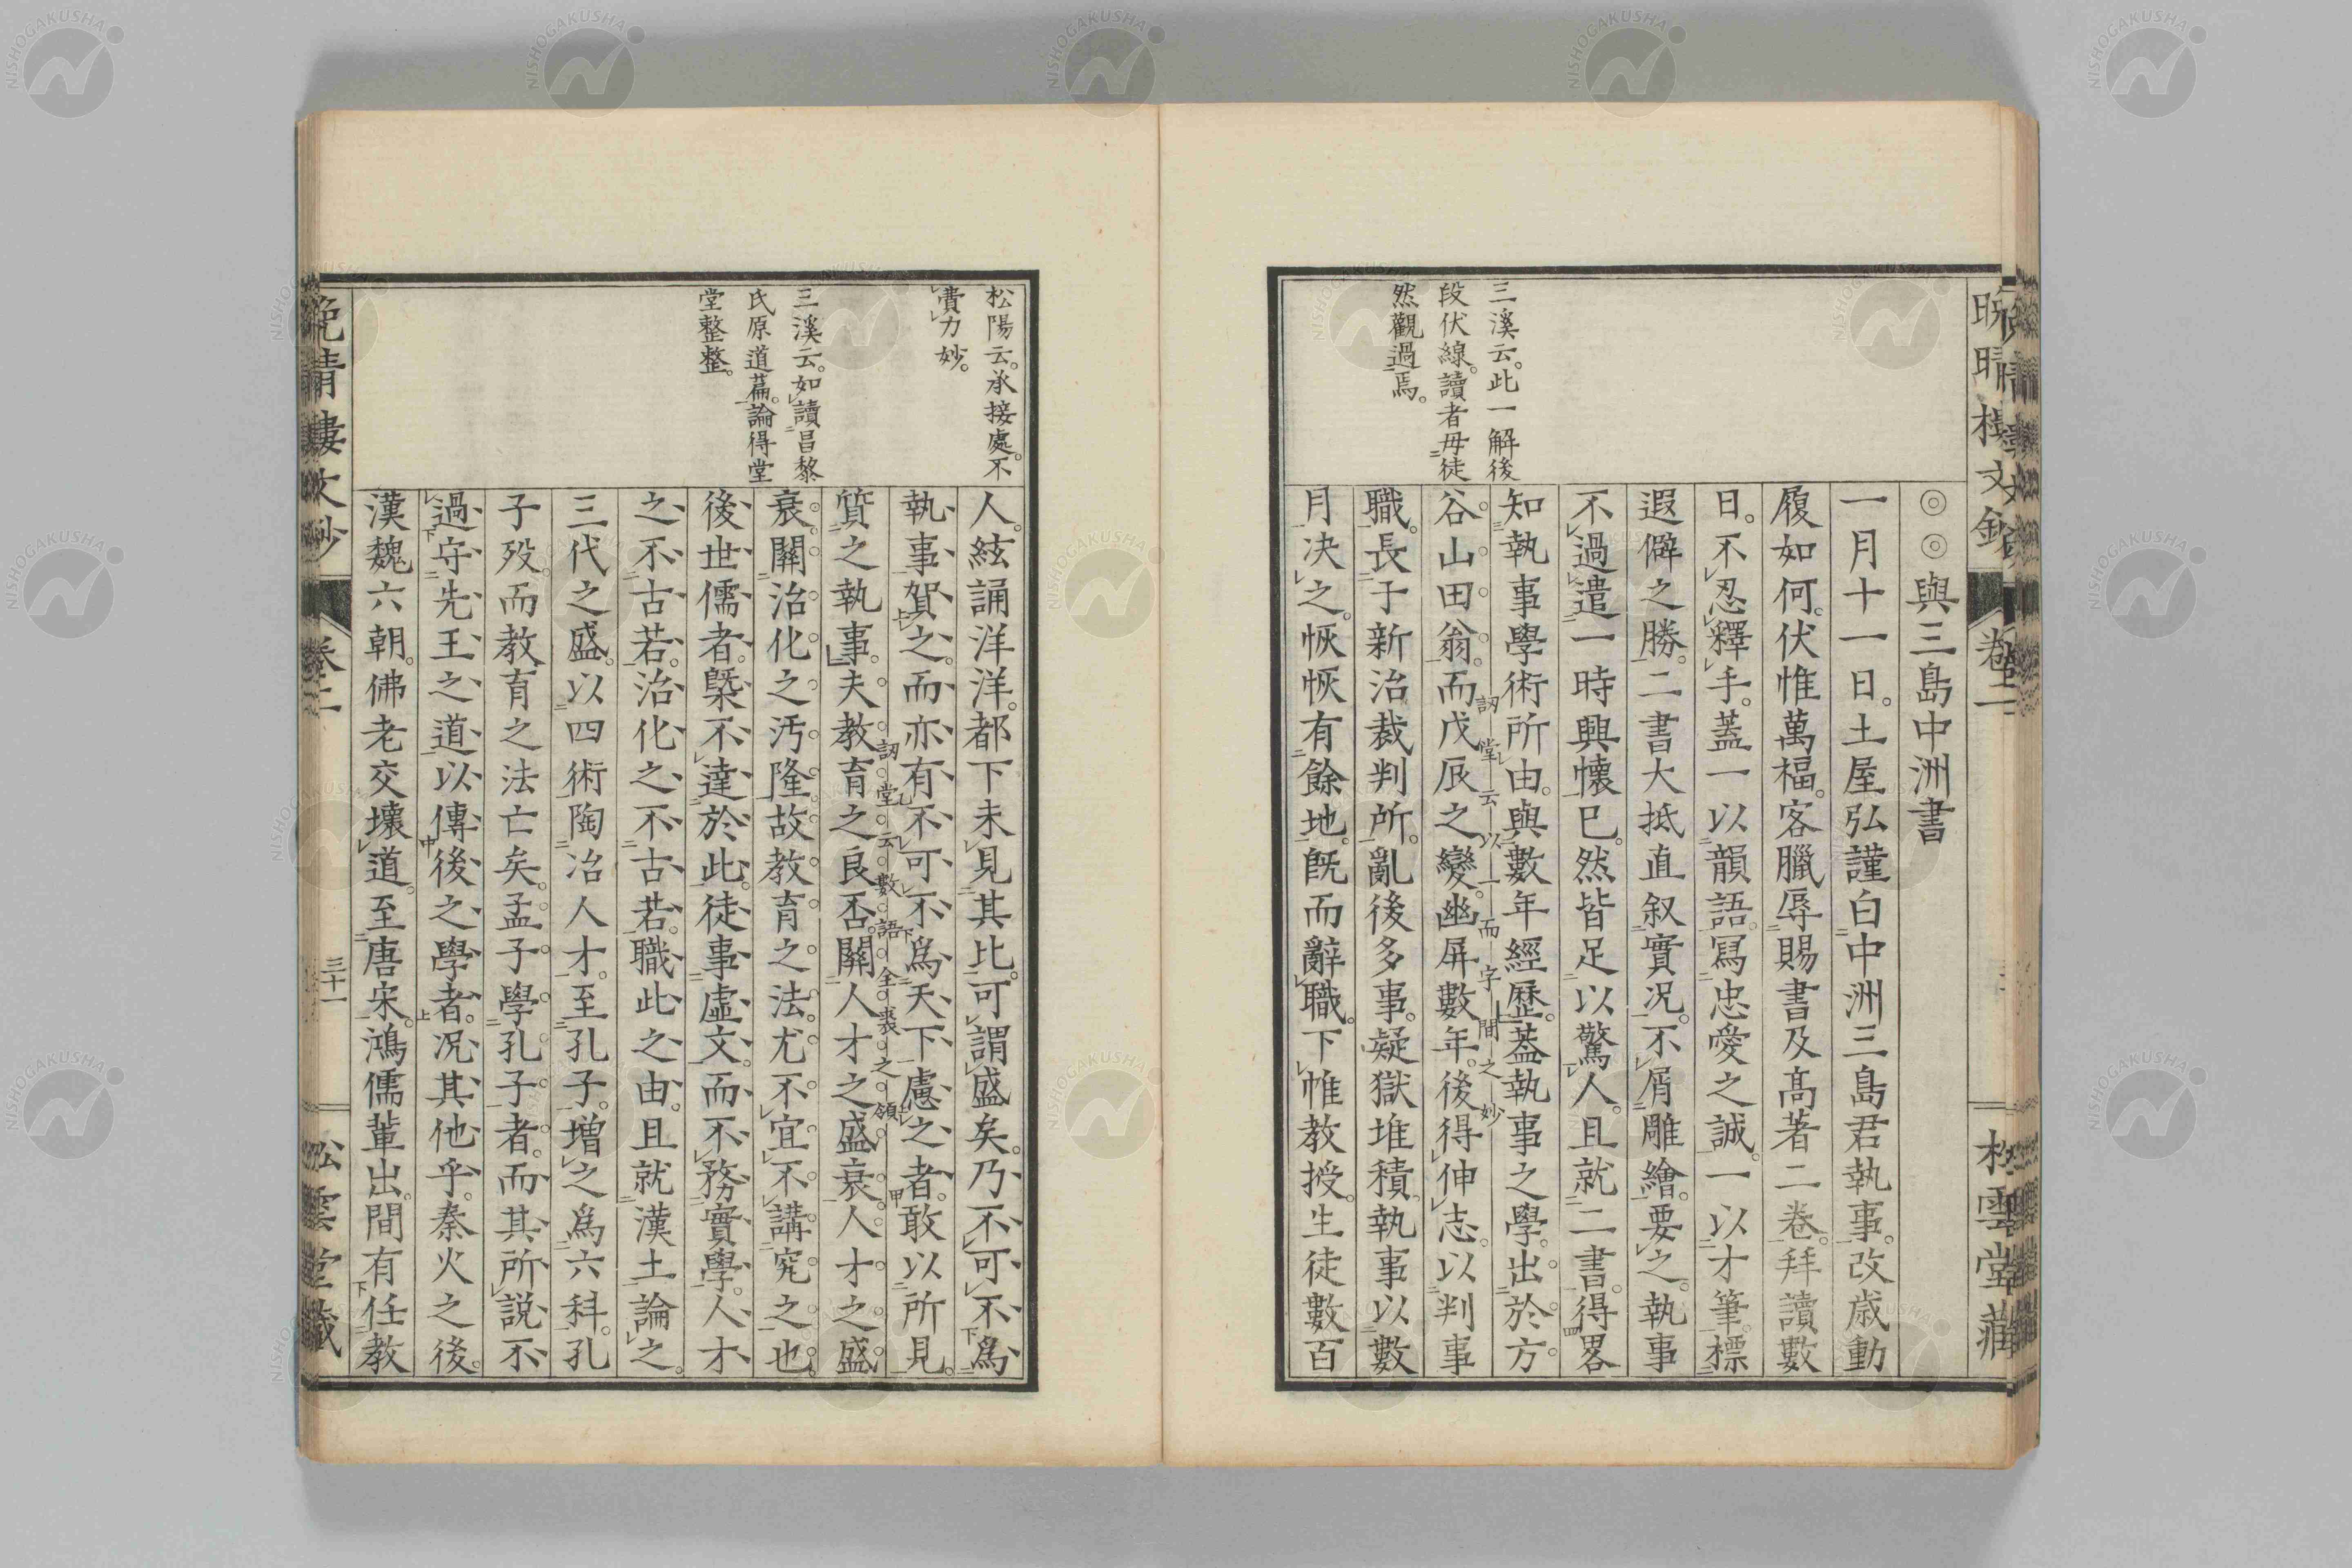 ◎◎與三島中洲書
一月十一日。土屋弘謹白中洲三島君執事。改歲動
履如何。伏惟萬福。客臘辱賜書及高著二卷。拜讀數
日。不忍釋手。蓋一以韻語。寫忠愛之誠。一以才筆。標
遐僻之勝。二書大抵直叙實况。不屑雕繪。要之。執事
不過遣一時興懷已。然皆足以驚人。且就二書。得畧
知執事學術所由。與數年經歷。蓋執事之學。出於方
谷山田翁。而戊辰之變。幽屏數年。後得伸志。以判事
職。長于新治裁判所。亂後多事。疑獄堆積。執事以數
月决之。恢恢有餘地。既而辭職。下帷教授。生徒數百
三溪云。此一解後
段伏線。讀者毋徒
然觀過焉。
訒堂云以一而字間之妙
人。絃誦洋洋。都下未見其比。可謂盛矣。乃不可不爲
執事賀之。而亦有不可不爲天下慮之者。敢以所見。
質之執事。夫教育之良否。關人才之盛衰。人才之盛
衰。關治化之汚隆。故教育之法。尤不宜不講究之也。
後世儒者。槩不達於此。徒事虛文。而不務實學。人才
之不古若。治化之不古若。職此之由。且就漢土論之。
三代之盛。以四術陶冶人才。至孔子。增之爲六科。孔
子歿而教育之法亡矣。孟子。學孔子者。而其所說。不
過守先王之道。以傳後之學者。况其他乎。秦火之後。
漢魏六朝。佛老交壞道。至唐宋。鴻儒輩出。間有任教
松陽云。承接處。不
費力妙。
三溪云。如讀昌黎
氏原道篇。論得堂
堂整整。
訒堂云數語全裘之領
晚晴樓文鈔
卷二
三十一
松雲堂藏